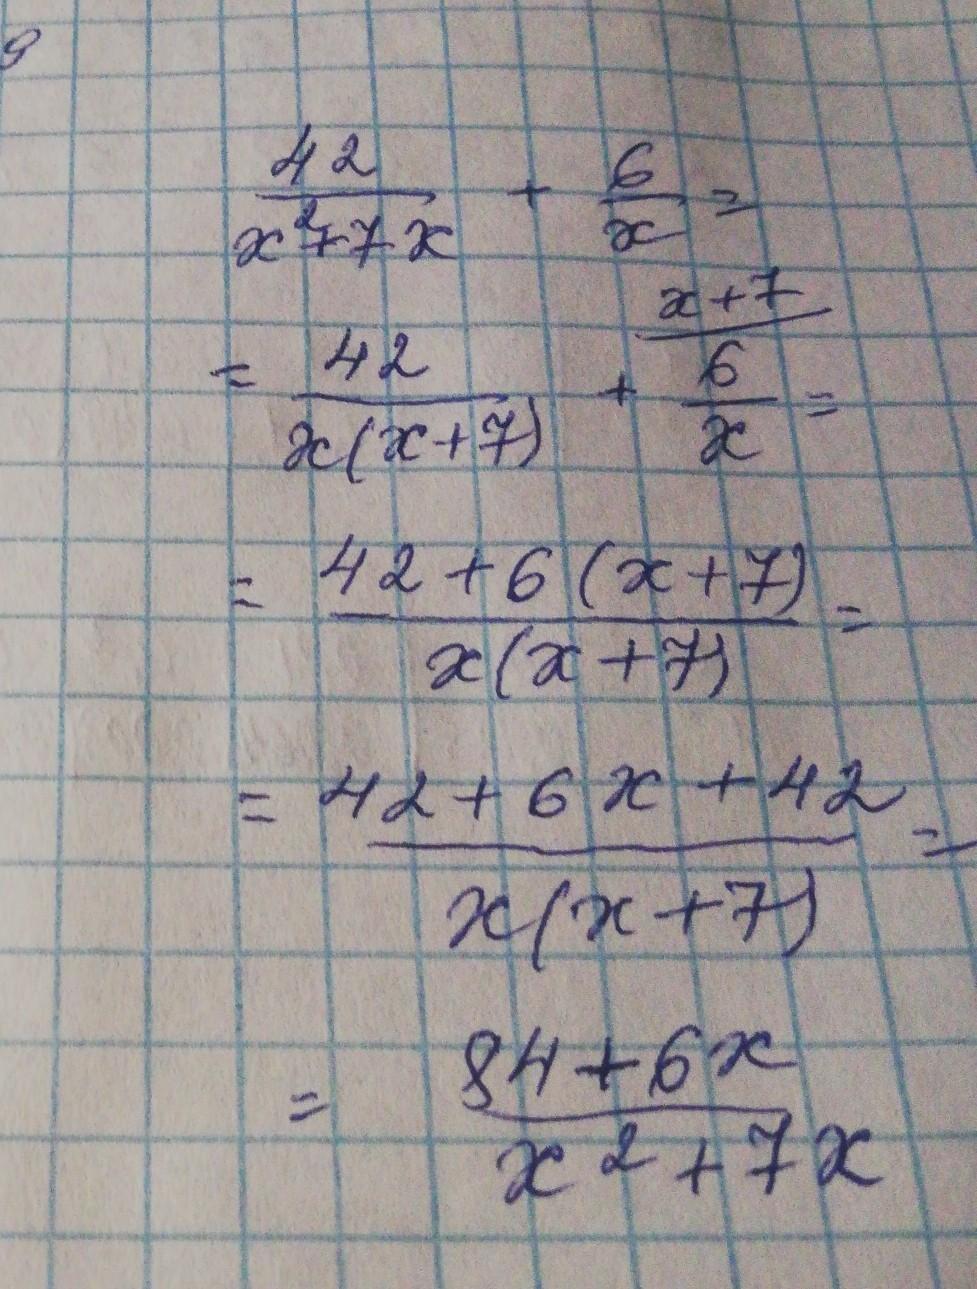 9
42/(x²+7x) + 6/x =
= 42/(x(x+7)) + (x+7)/(6/x) =
= (42+6(x+7))/(x(x+7)) =
= (42+6x+42)/(x(x+7)) =
= (84+6x)/(x²+7x)